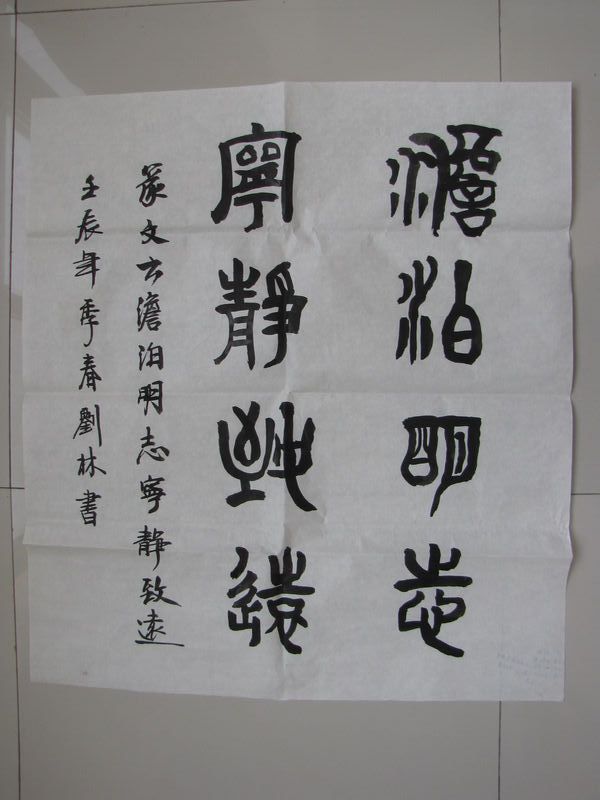 澹泊明志
寧靜致遠
篆文云澹泊明志寧靜致遠
壬辰年季春劉林書